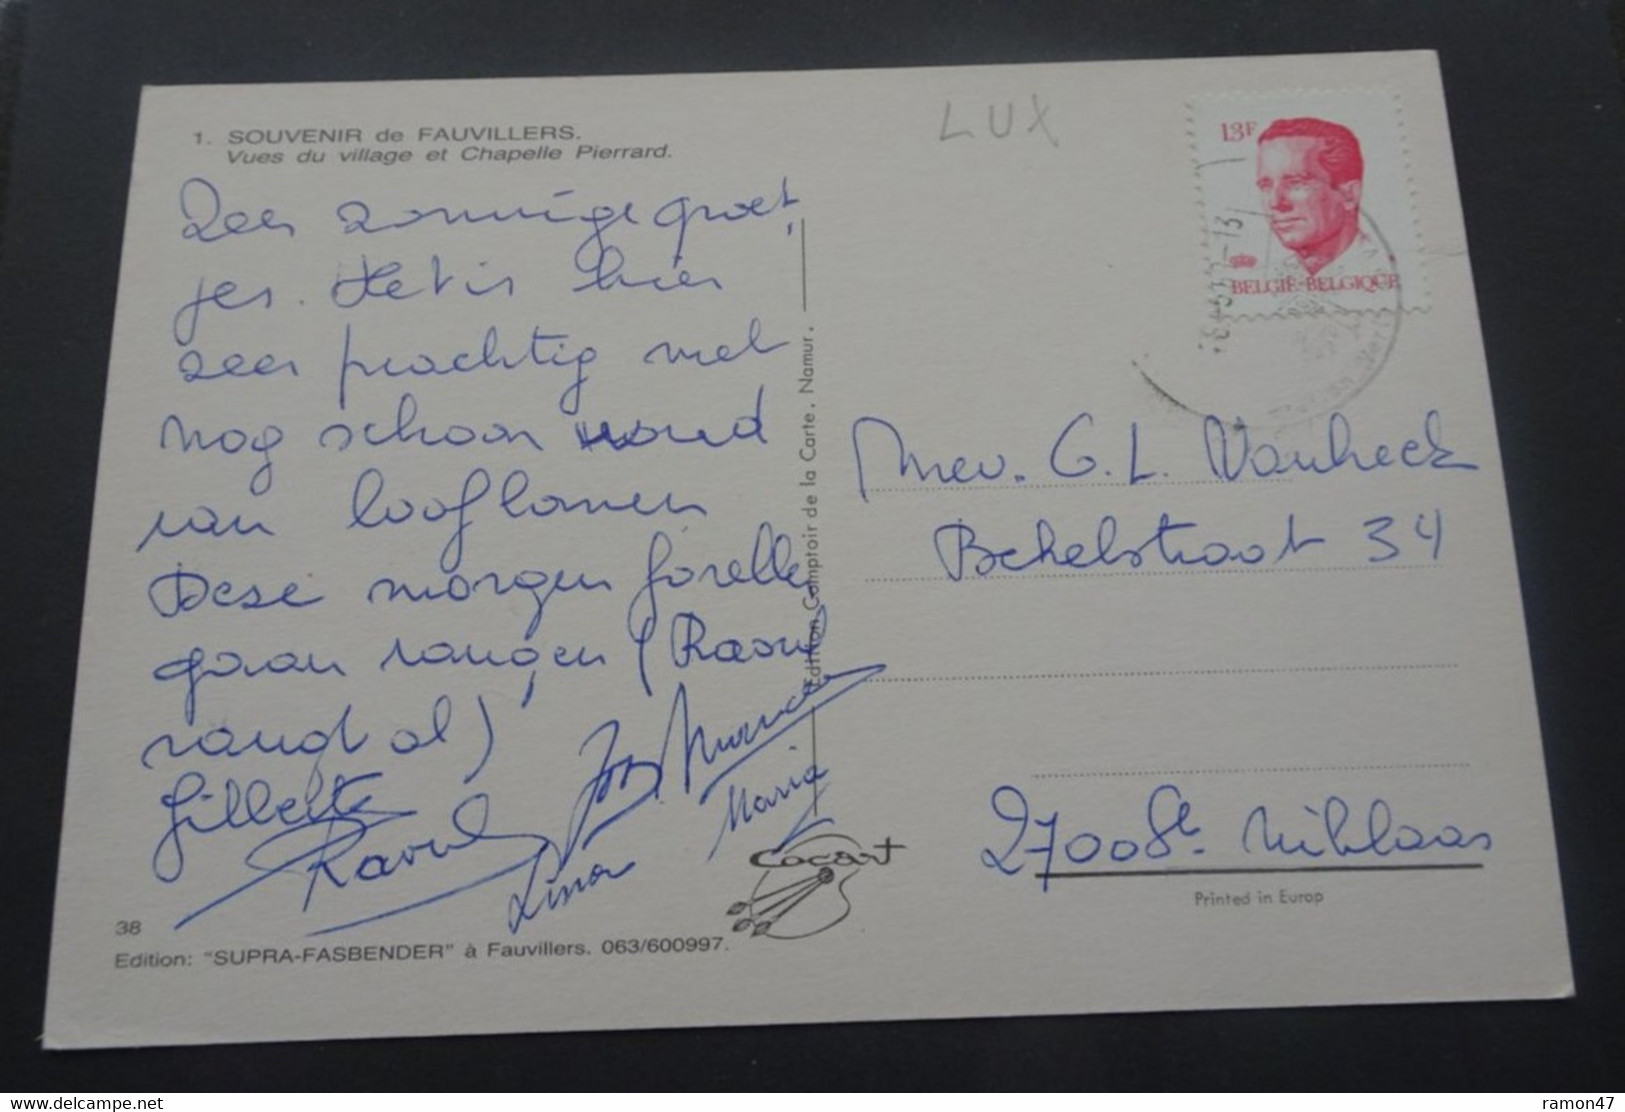 LUX
13F
BELGIË-BELGIQUE
1. SOUVENIR de FAUVILLERS.
Vues du village et Chapelle Pierrard.
Zeer zonnige groet
jes. Het is hier
zeer prachtig met
nog schoon
van
Deze morgen forellen
gaan vangen (Raoul
vangt al)
Gillette
Raoul
Maria
Edition Comptoir de la Carte, Namur.
Mev. G. L. Vanheck
34
2700 St. Niklaas
Cocart
Printed in Europ
38
Edition: "SUPRA-FASBENDER" à Fauvillers. 063/600997.
delcampe.net
ramon47